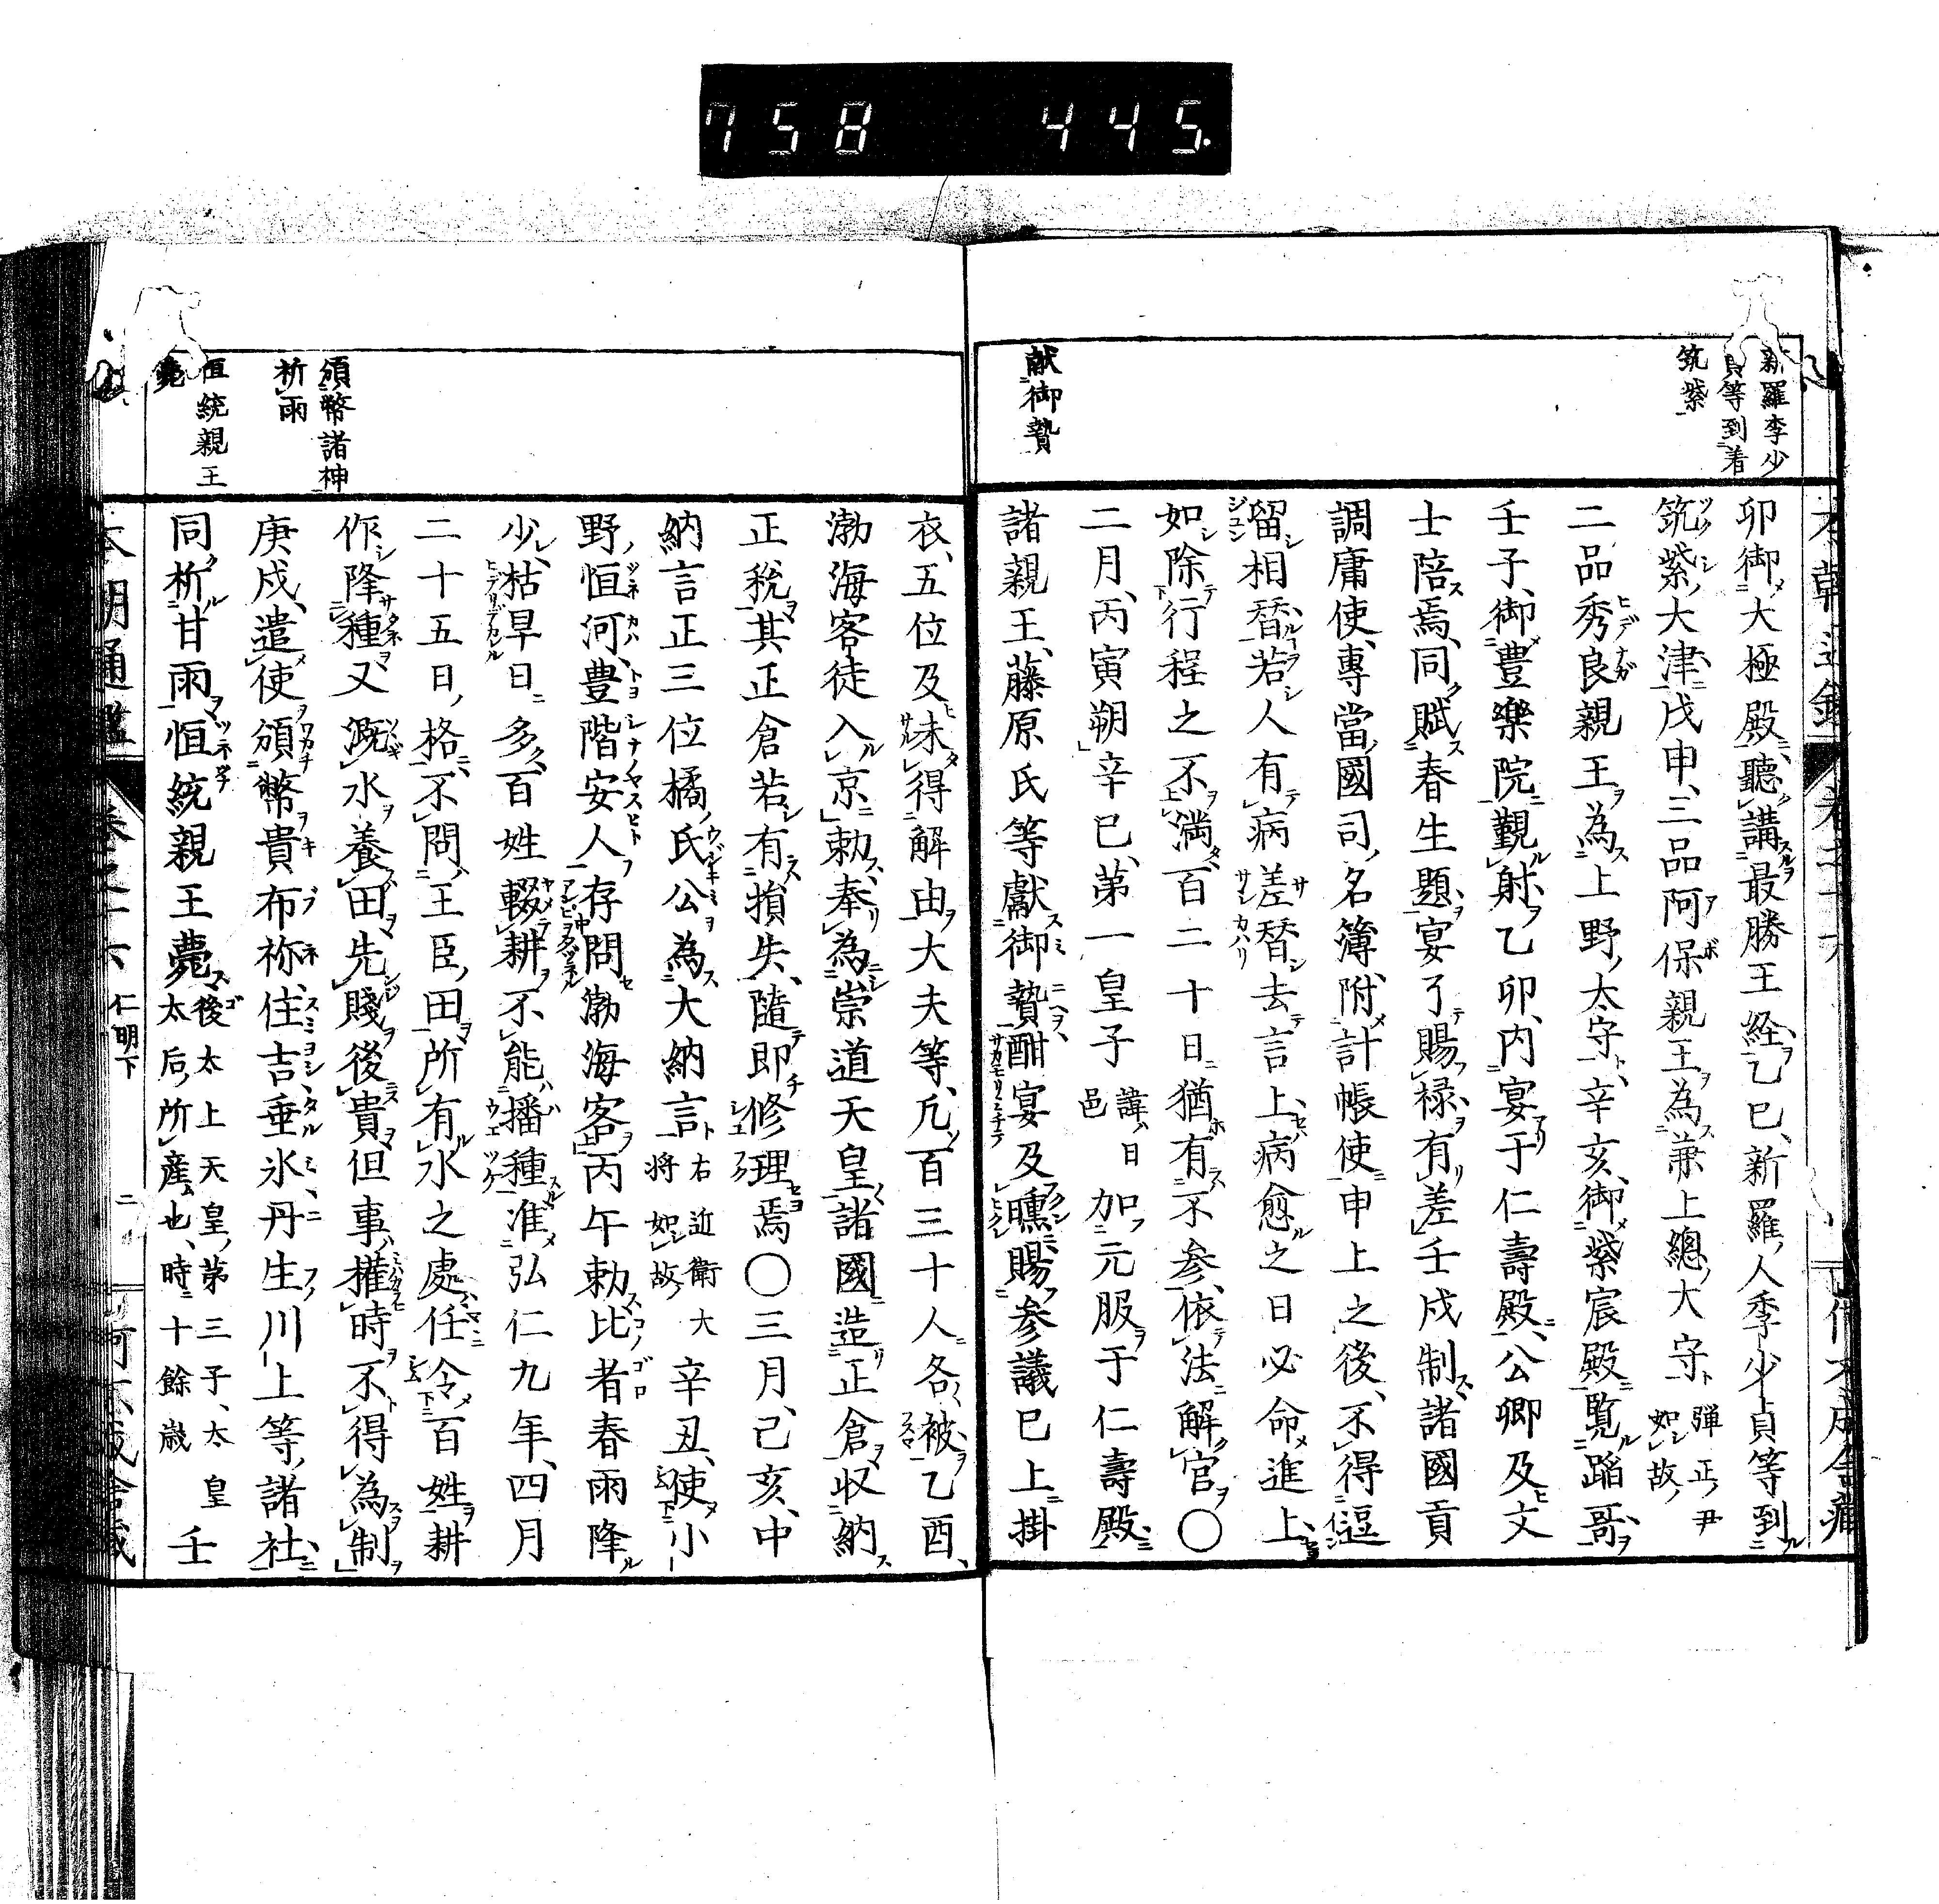 758 445.
新羅李少
貞等到着
筑紫
献御贄
卯御大極殿聽講最勝王経乙巳新羅人李少貞等到
筑紫大津戊申三品阿保親王為兼上總大守弾正尹如故
二品秀良親王為上野太守辛亥御紫宸殿覧蹈哥
壬子御豊樂院觀射乙卯内宴于仁壽殿公卿及文
士陪焉同賦春生題宴了賜禄有差壬戌制諸國貢
調庸使專當國司名簿附計帳使申上之後不得逗
留相替若人有病差替去言上病愈之日必命進上
如除行程之不満百二十日猶有不参依法解官〇
二月丙寅朔辛巳第一皇子諱曰邑加元服于仁壽殿
諸親王藤原氏等獻御贄酣宴及曛賜参議已上掛
衣五位及未得解由大夫等凡百三十人各被乙酉
渤海客徒入京勅奉為崇道天皇諸國造正倉収納
正税其正倉若有損失隨即修理焉〇三月己亥中
納言正三位橘氏公為大納言右近衛大将如故辛丑使小
野恒河豊階安人存問渤海客丙午勅比者春雨降
少枯旱日多百姓輟耕不能播種准弘仁九年四月
二十五日格不問王臣田所有水之處任令百姓耕
作降種又漑水養田先賤後貴但事權時不得為制
庚戌遣使頒幣貴布祢住吉垂氷丹生川上等諸社
同祈甘雨恒統親王薨後太上天皇第三子太皇太后所産也時十餘歳壬
頒幣諸神
祈雨
恒統親王
薨
本朝通鑑
卷之十六
仁明下
二